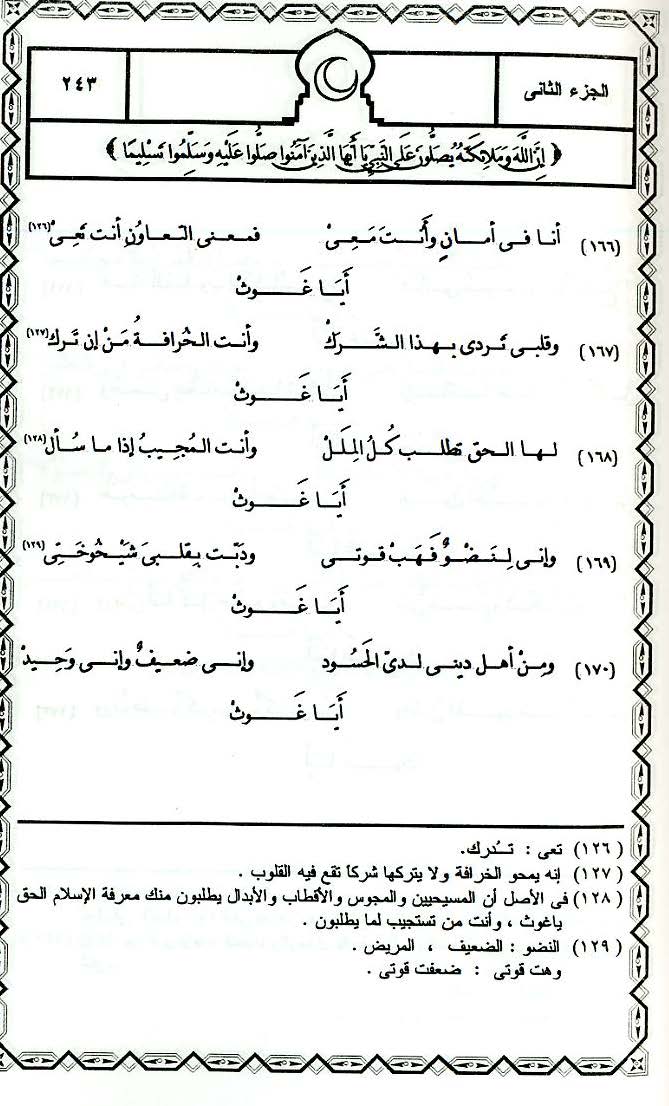 الجزء الثانى
٢٤٣
﴿ إِنَّ اللَّهَ وَمَلَائِكَتَهُ يُصَلُّونَ عَلَى النَّبِيِّ يَا أَيُّهَا الَّذِينَ آمَنُوا صَلُّوا عَلَيْهِ وَسَلِّمُوا تَسْلِيمًا ﴾
(١٦٦) أنا فى أمـانٍ وأَنْـت مَـعِـىْ فمـعنى التـعاوُن أنت تَعِىْ (١٢٦)
أَيَـا غَـــوثْ
(١٦٧) وقلبـى تَردى بـهـذا الشَّـرَكْ وأنت الـخُرافـةُ مَنْ إن تَرك (١٢٧)
أَيَـا غَـــوثْ
(١٦٨) لـهـا الـحق تطلـب كُـلُ المِلَـلْ وأنت المُجِيبُ إذا ما سُـأل (١٢٨)
أَيَـا غَـــوثْ
(١٦٩) وإنى لِـنَـضْـوٌ فَهَبْ قـوتـى ودَبّـت بِقلـبـىَ شَيْخُوخَتِى (١٢٩)
أَيَـا غَـــوثْ
(١٧٠) ومِنْ أهـل دينـى لدىّ الحَسُود وإنـى ضعيـفٌ وإنـى وَحِـيـدْ
أَيَـا غَـــوثْ
(١٢٦) تعى : تـدرك.
(١٢٧) إنه يمحو الخرافة ولا يتركها شركاً تقع فيه القلوب .
(١٢٨) فى الأصل أن المسيحيين والمجوس والأقطاب والأبدال يطلبون منك معرفة الإسلام الحق
ياغوث ، وأنت من تستجيب لما يطلبون .
(١٢٩) النضو : الضعيف ، المريض .
وهت قوتى : ضعفت قوتى .